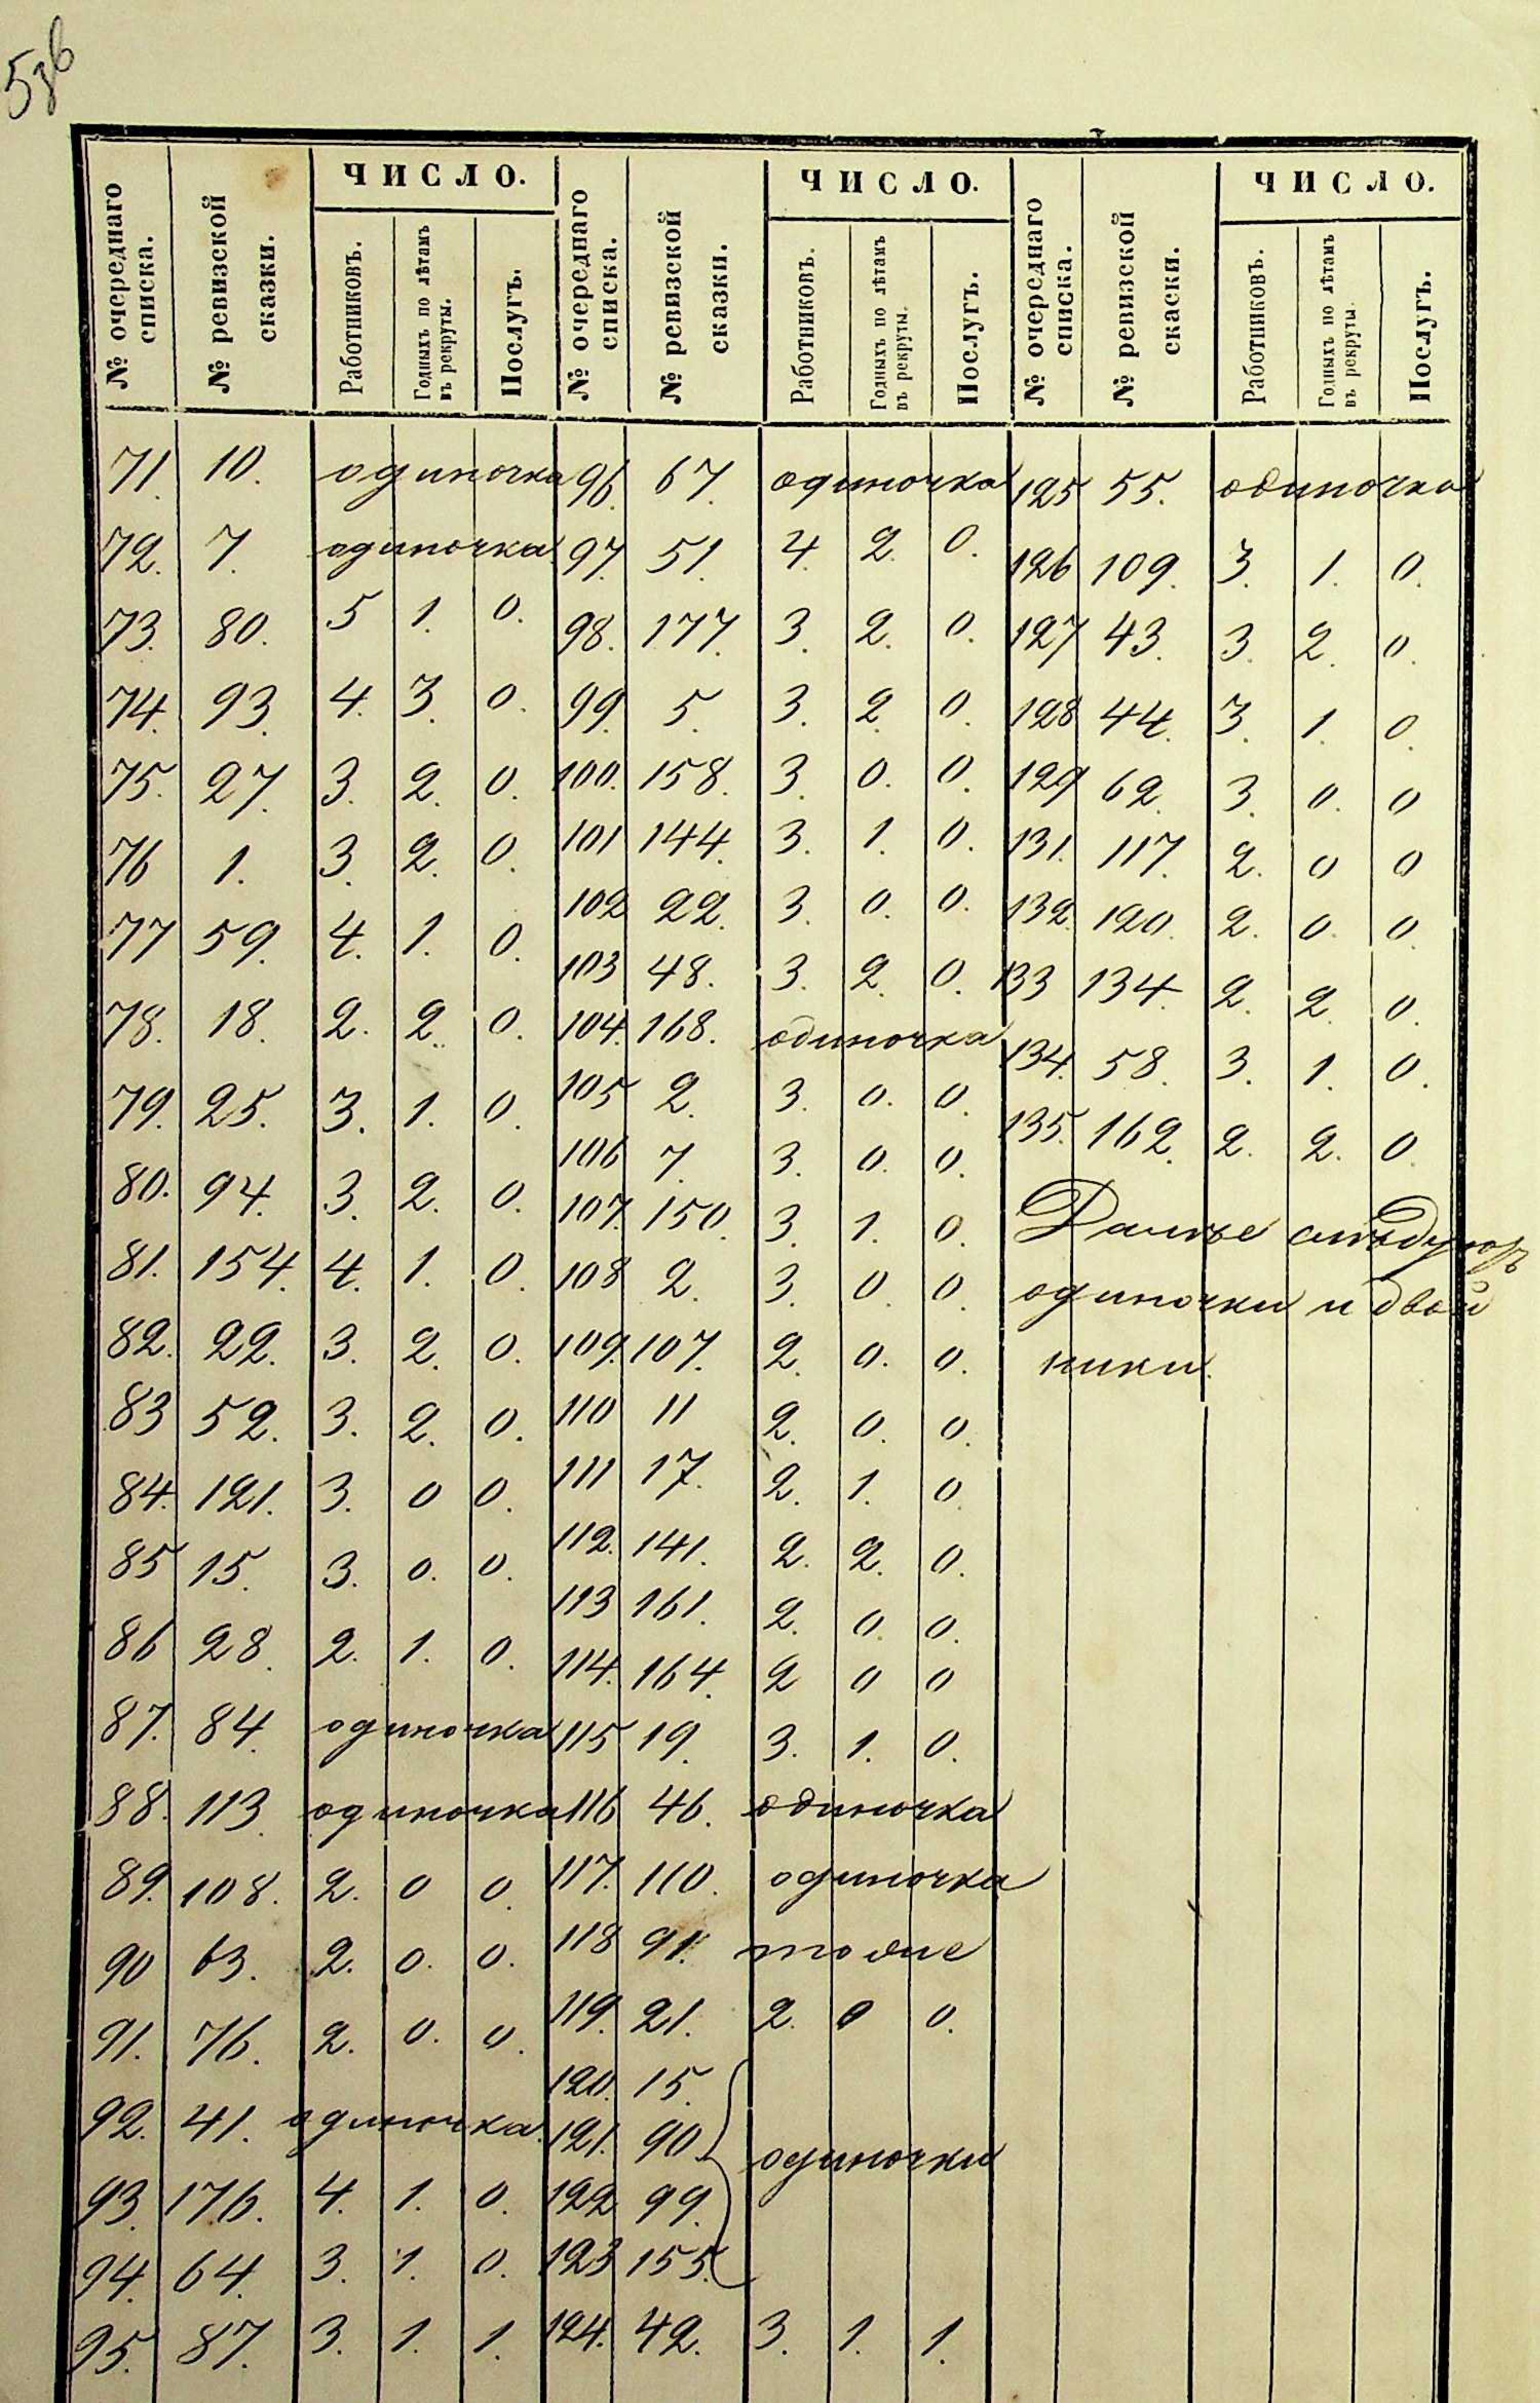 ЧИСЛО.
№ очереднаго списка.
№ ревизской сказки.
Работниковъ.
Годныхъ по лѣтамъ въ рекруты.
Послугъ.
71. 10. одиночка
72. 7. одиночка
73. 80. 5 1. 0.
74. 93. 4. 3. 0.
75. 27. 3. 2. 0.
76 1. 3. 2. 0.
77 59. 4. 1. 0.
78. 18. 2. 2. 0.
79. 25. 3. 1. 0.
80. 94. 3. 2. 0.
81. 154. 4. 1. 0.
82. 22. 3. 2. 0.
83 52. 3. 2. 0.
84. 121. 3. 0 0.
85 15. 3. 0. 0.
86 28. 2. 1. 0.
87. 84. одиночка
88. 113. одиночка
89. 108. 2. 0 0.
90 63. 2. 0. 0.
91. 76. 2. 0. 0.
92. 41. одиночка.
93. 176. 4. 1. 0.
94. 64. 3. 1. 0.
95. 87. 3. 1. 1.
ЧИСЛО.
№ очереднаго списка.
№ ревизской сказки.
Работниковъ.
Годныхъ по лѣтамъ въ рекруты.
Послугъ.
96. 67. одиночка
97. 51. 4. 2. 0.
98. 177. 3. 2. 0.
99. 5. 3. 2. 0.
100. 158. 3. 0. 0.
101 144. 3. 1. 0.
102 22. 3. 0. 0.
103 48. 3. 2. 0.
104. 168. одиночка
105 2. 3. 0. 0.
106 7. 3. 0. 0.
107. 150. 3. 1. 0.
108 2. 3. 0. 0.
109. 107. 2. 0. 0.
110 11 2. 0. 0.
111 17. 2. 1. 0.
112. 141. 2. 2. 0.
113 161. 2. 0. 0.
114. 164. 2 0 0
115 19. 3. 1. 0.
116 46. одиночка
117. 110. одиночка
118 91. тоже
119. 21. 2. 0 0.
120. 15.
121. 90. одиночки
122 99.
123 155.
124. 42. 3. 1. 1.
ЧИСЛО.
№ очереднаго списка.
№ ревизской скаски.
Работниковъ.
Годныхъ по лѣтамъ въ рекруты.
Послугъ.
125 55. одиночка
126 109. 3. 1. 0.
127 43. 3. 2. 0.
128 44. 3. 1. 0.
129 62. 3. 0. 0
131. 117. 2. 0 0
132. 120. 2. 0. 0.
133 134. 2. 2. 0.
134. 58. 3. 1. 0.
135. 162. 2. 2. 0.
Далѣе слѣдуютъ
одиночки и двой
ники.